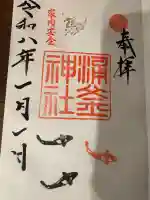 奉拝
家内安全
涌釜
神社
令和八年一月一日